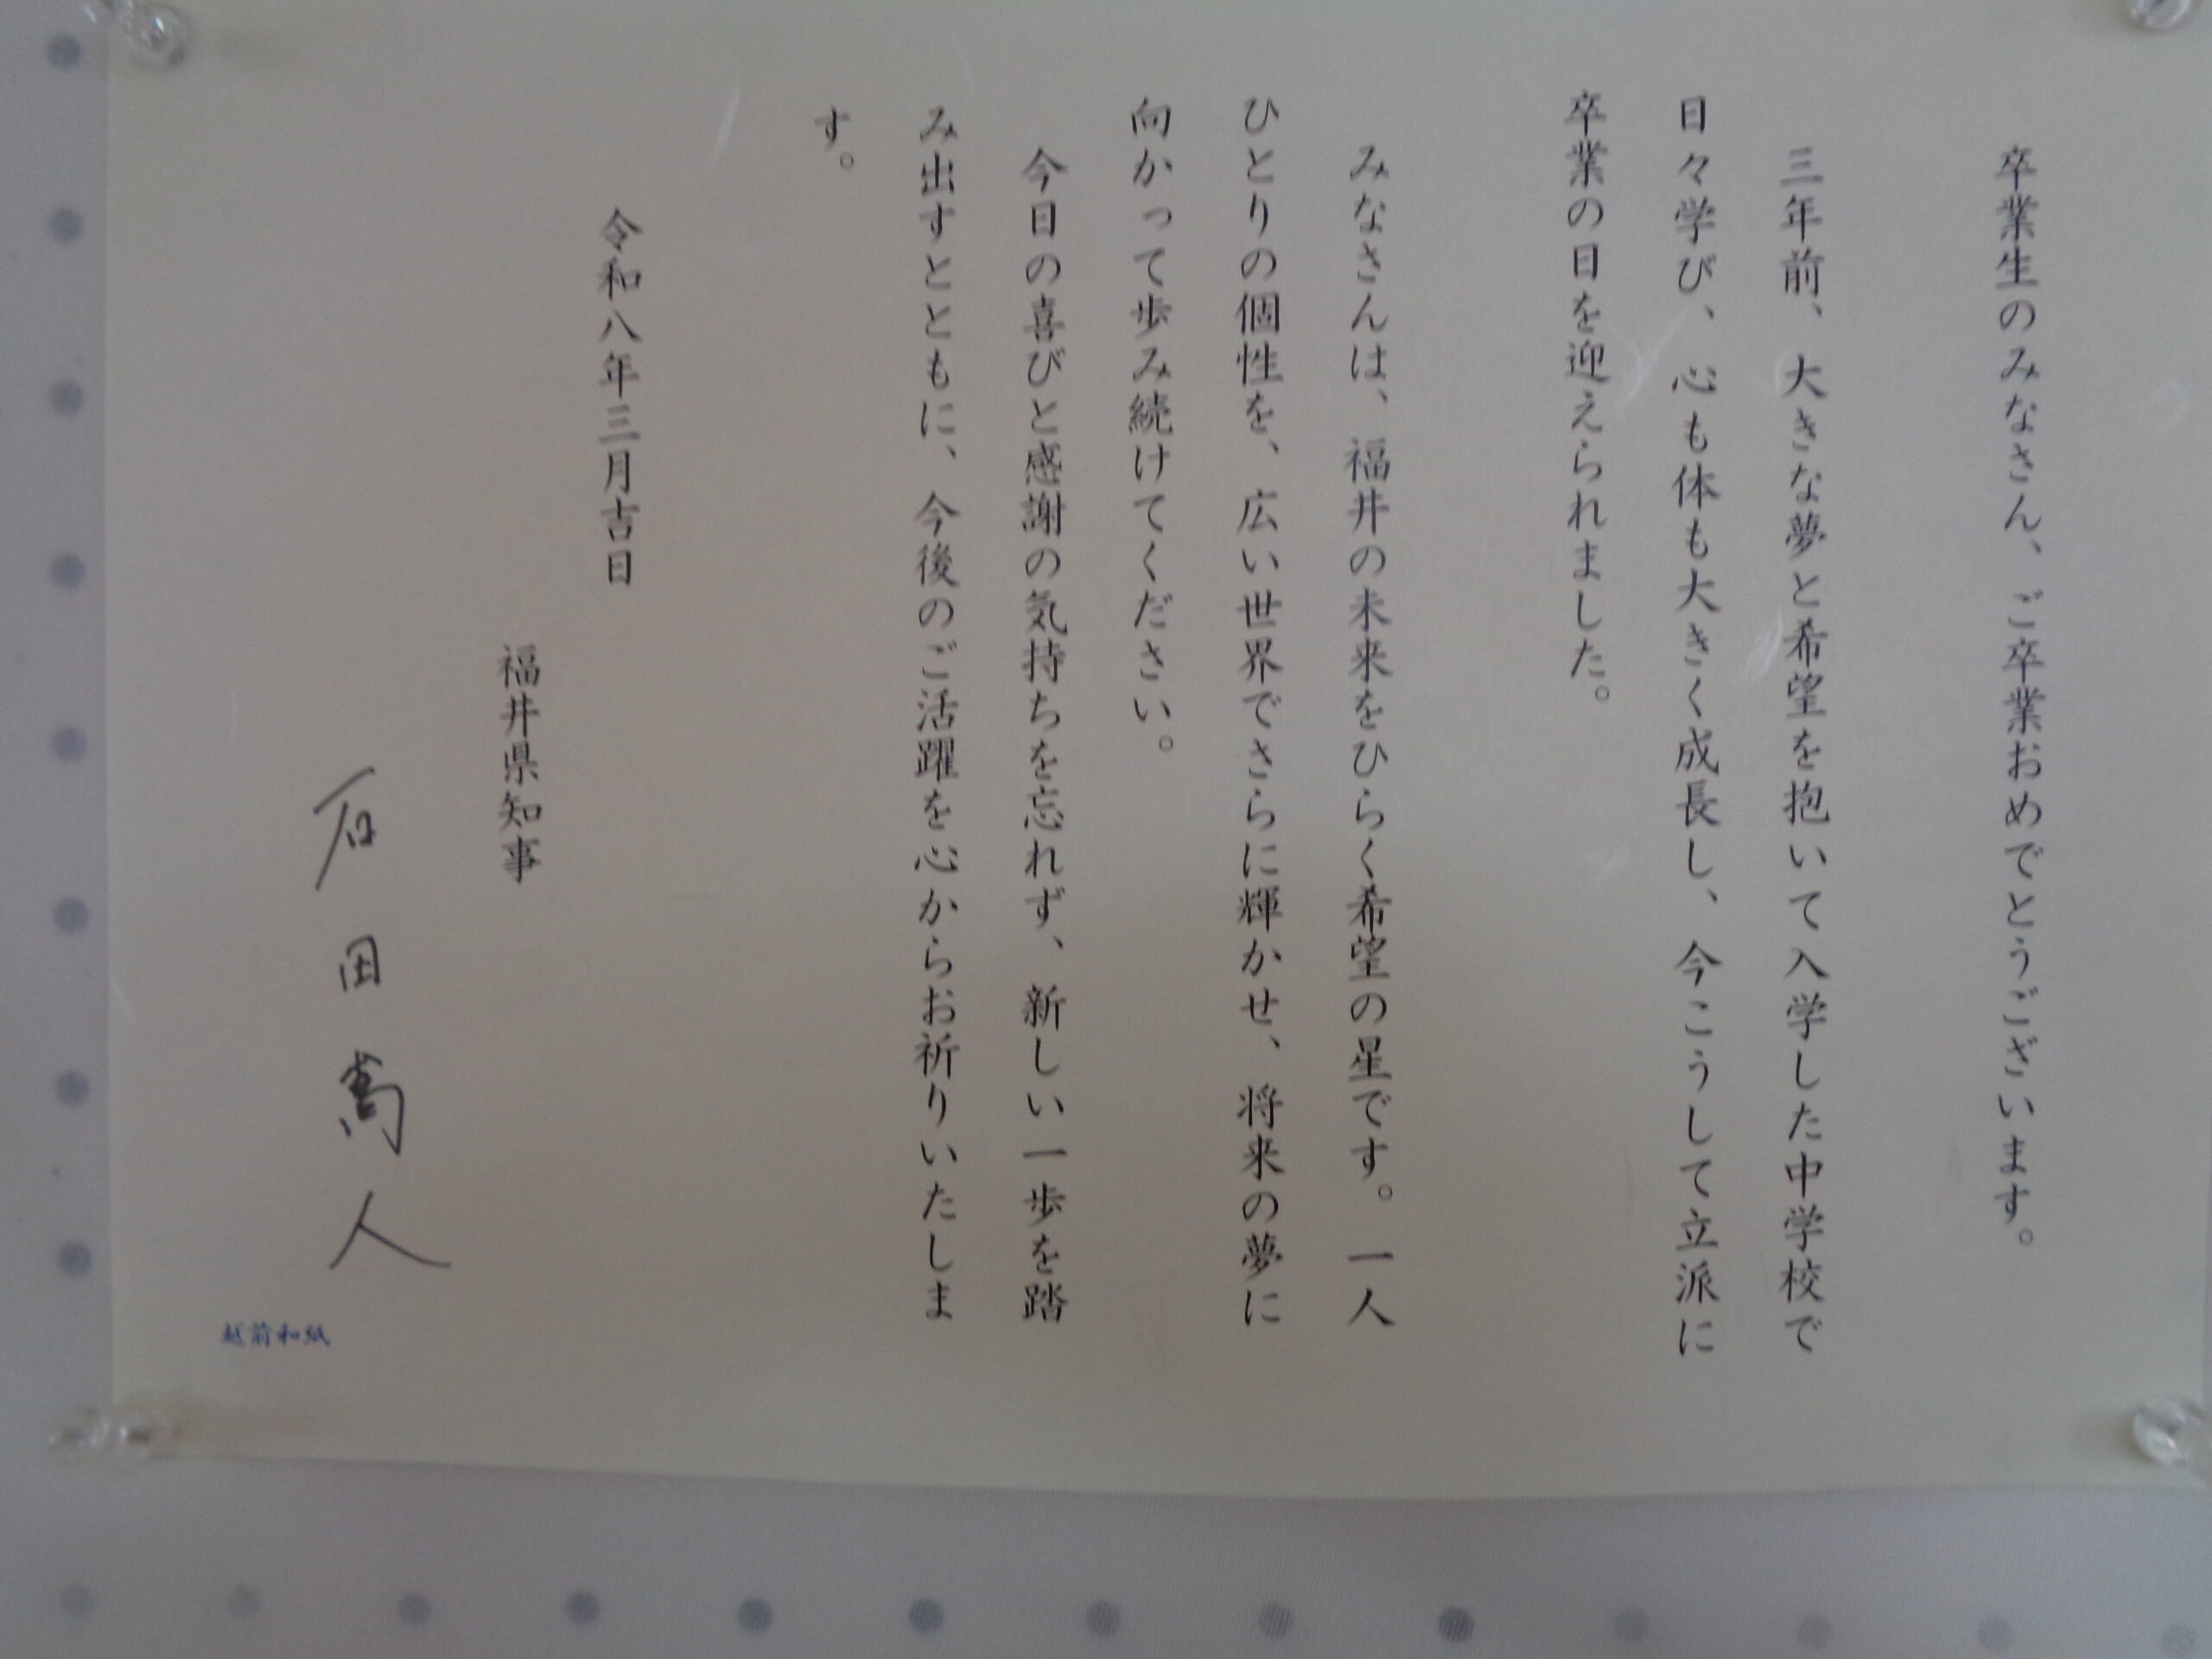 卒業生のみなさん、ご卒業おめでとうございます。
三年前、大きな夢と希望を抱いて入学した中学校で
日々学び、心も体も大きく成長し、今こうして立派に
卒業の日を迎えられました。
みなさんは、福井の未来をひらく希望の星です。一人
ひとりの個性を、広い世界でさらに輝かせ、将来の夢に
向かって歩み続けてください。
今日の喜びと感謝の気持ちを忘れず、新しい一歩を踏
み出すとともに、今後のご活躍を心からお祈りいたしま
す。
令和八年三月吉日
福井県知事
石田嵩人
越前和紙